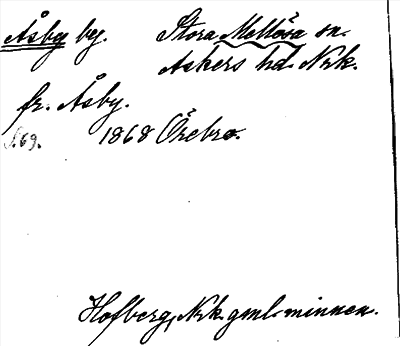 Åsby by. Stora Mellösa sn.
Askers hd. Nrk.
fr. Åsby.
S.69. 1868 Örebro.
Hofberg, Nrk. gml. minnen.